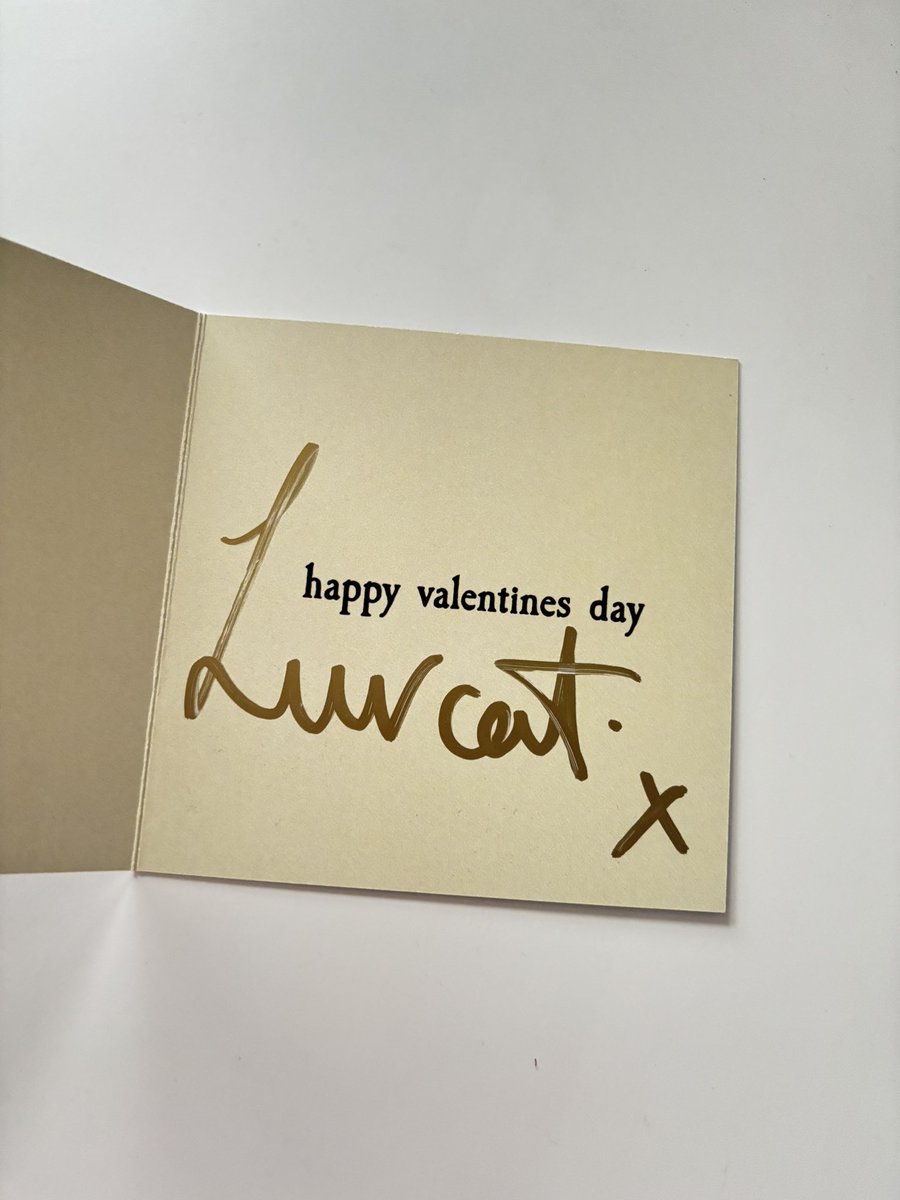 happy valentines day
Luvcat.
x